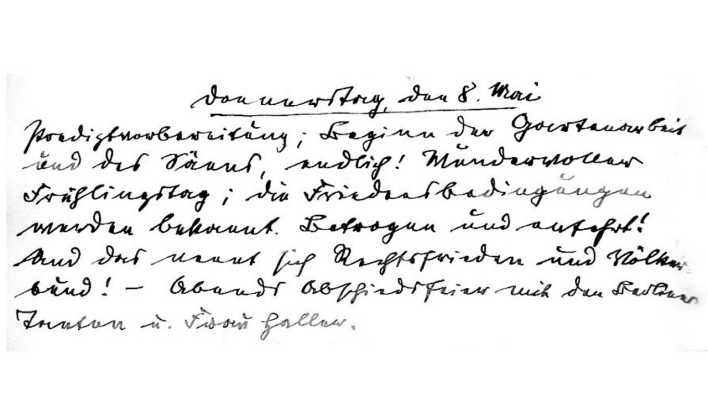 Donnerstag, den 8. Mai
Predigtvorbereitung; Beginn der Gartenarbeit
und des Säens, endlich! Wundervoller
Frühlingstag; die Friedensbedingungen
werden bekannt. Betrogen und entehrt!
Und das nennt sich Rechtsfrieden und Völker
bund! – Abends Abschiedsfeier mit den Berliner
Tanten u. Frau Haller.